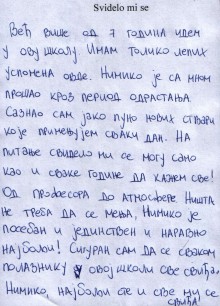 Svidelo mi se
Већ више од 7 година идем
у ову школу. Имам толико лепих
успомена овде. Нимико је са мном
прошао кроз период одрастања.
Сазнао сам јако пуно нових ствари
које примењујем сваки дан. На
питање свидело ми се могу само
као и сваке године да кажем све!
Од професора до атмосфере. Ништа
не треба да се мења, Нимико је
посебан и јединствен и наравно
најбољи! Сигуран сам да се сваком
полазнику у овој школи све свиђа.
Нимико, најбољи сте и све ми се
свиђа!